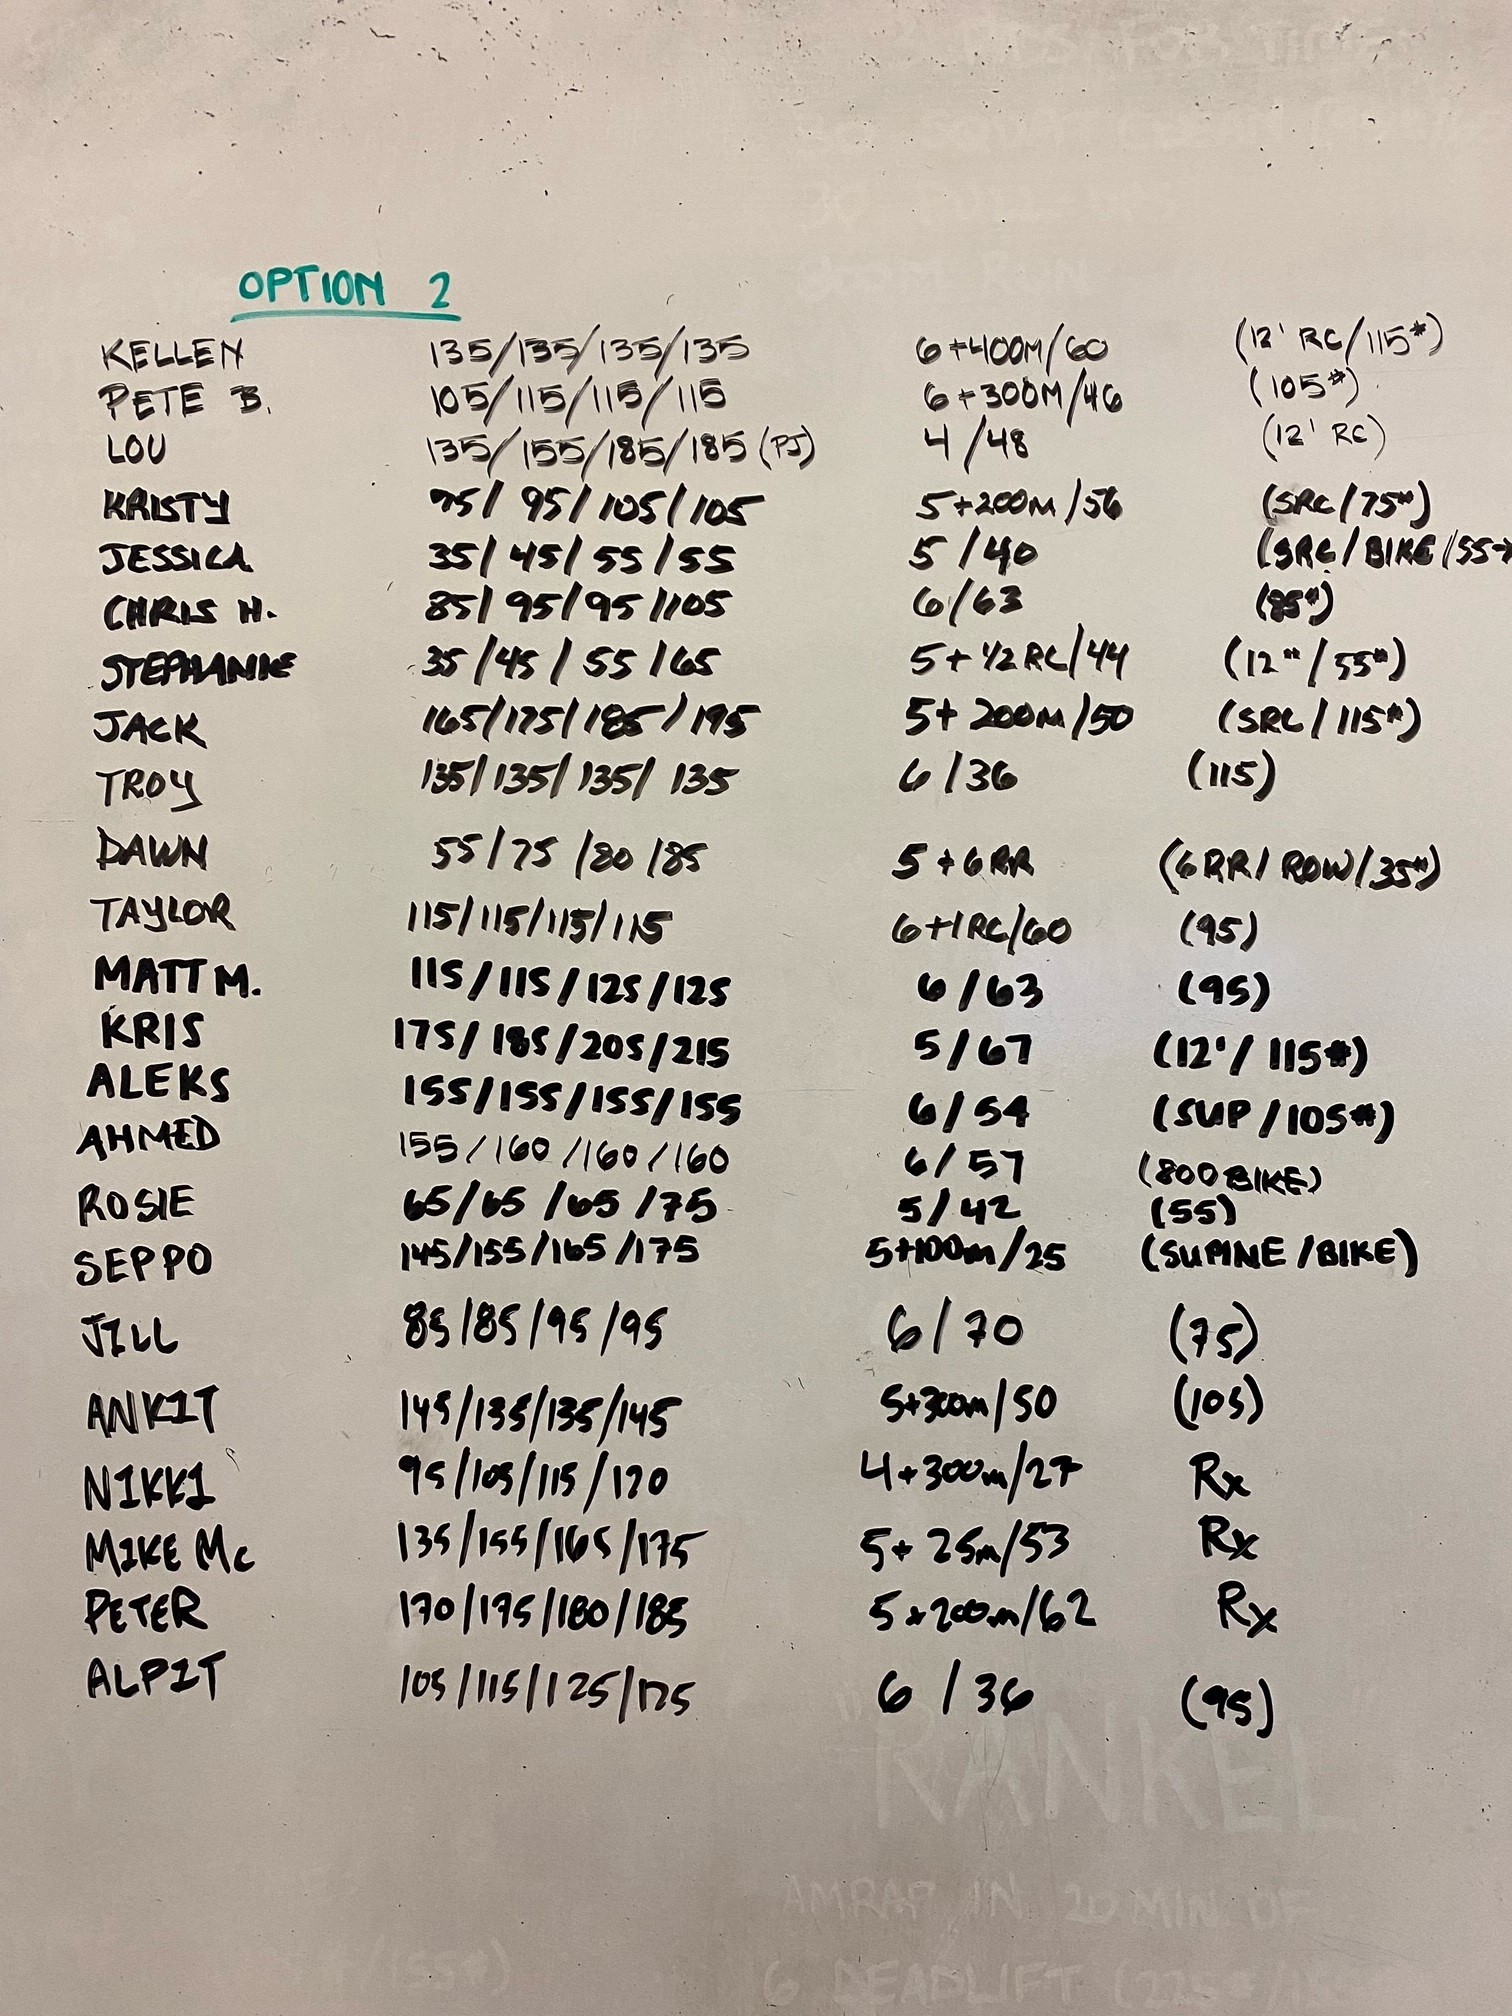 OPTION 2
KELLEN 135/135/135/135 6+400M/60 (12' RC/115#)
PETE B. 105/115/115/115 6+300M/46 (105#)
LOU 135/155/185/185 (PJ) 4/48 (12' RC)
KRISTY 75/95/105/105 5+200M/56 (SRC/75#)
JESSICA 35/45/55/55 5/40 (SRC/BIKE/55#
CHRIS H. 85/95/95/105 6/63 (85#)
STEPHANIE 35/45/55/65 5+1/2RC/44 (12"/55#)
JACK 165/175/185/195 5+200M/50 (SRC/115#)
TROY 135/135/135/135 6/36 (115)
DAWN 55/75/80/85 5+6RR (6RR/ROW/35#)
TAYLOR 115/115/115/115 6+1RC/60 (95)
MATT M. 115/115/125/125 6/63 (95)
KRIS 175/185/205/215 5/67 (12'/115#)
ALEKS 155/155/155/155 6/54 (SUP/105#)
AHMED 155/160/160/160 6/57 (800 BIKE)
ROSIE 65/65/65/75 5/42 (55)
SEPPO 145/155/165/175 5+100m/25 (SUPINE/BIKE)
JILL 85/85/95/95 6/70 (75)
ANKIT 145/135/135/145 5+300m/50 (105)
NIKKI 95/105/115/120 4+300m/27 Rx
MIKE Mc 135/155/165/175 5+25m/53 Rx
PETER 170/175/180/185 5+200m/62 Rx
ALPIT 105/115/125/125 6/36 (95)
"RANKEL"
AMRAP IN 20 MIN OF
6 DEADLIFT (225#/